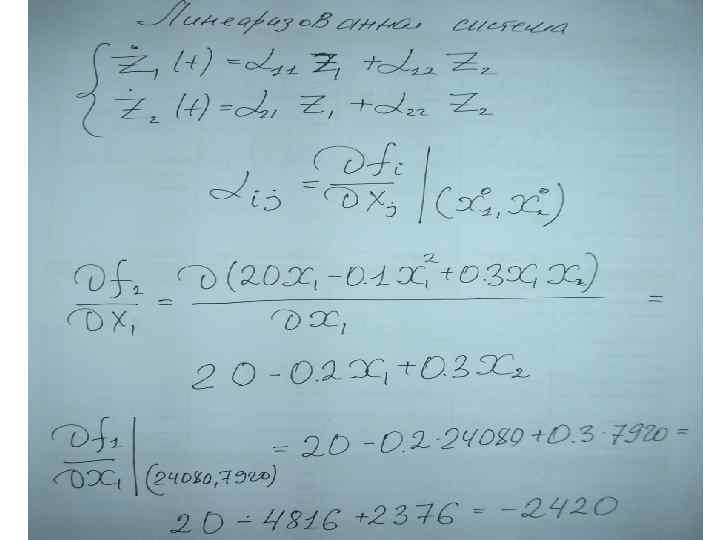 Линеаризованная система
{ Ż₁(t) = α₁₁ Z₁ + α₁₂ Z₂
Ż₂(t) = α₂₁ Z₁ + α₂₂ Z₂
αᵢⱼ = ∂fᵢ/∂xⱼ | (x₁°, x₂°)
∂f₂/∂x₁ = ∂(20x₁ - 0.1x₁² + 0.3x₁x₂)/∂x₁ =
20 - 0.2x₁ + 0.3x₂
∂f₁/∂x₁ | (24080, 7920) = 20 - 0.2·24080 + 0.3·7920 =
20 - 4816 + 2376 = -2420